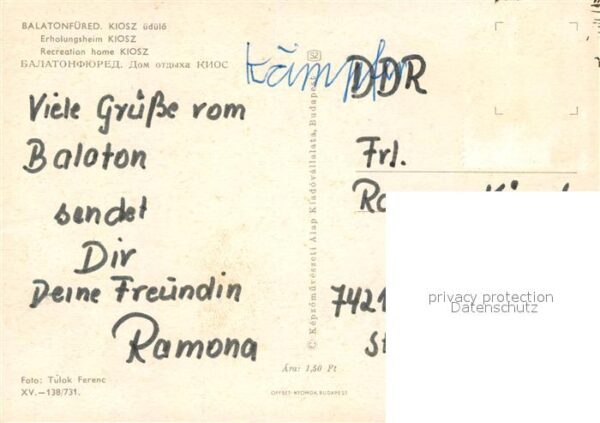 BALATONFÜRED. KIOSZ üdülő
Erholungsheim KIOSZ
Recreation home KIOSZ
БАЛАТОНФЮРЕД. Дом отдыха КИОС
Viele Grüße vom
Balaton
sendet
Dir
Deine Freundin
Ramona
Foto: Tulok Ferenc
XV.—138/731.
© Képzőművészeti Alap Kiadóvállalata, Budapest
Ára: 1,50 Ft
OFFSET-NYOMDA, BUDAPEST
DDR
Frl.
7421
privacy protection
Datenschutz